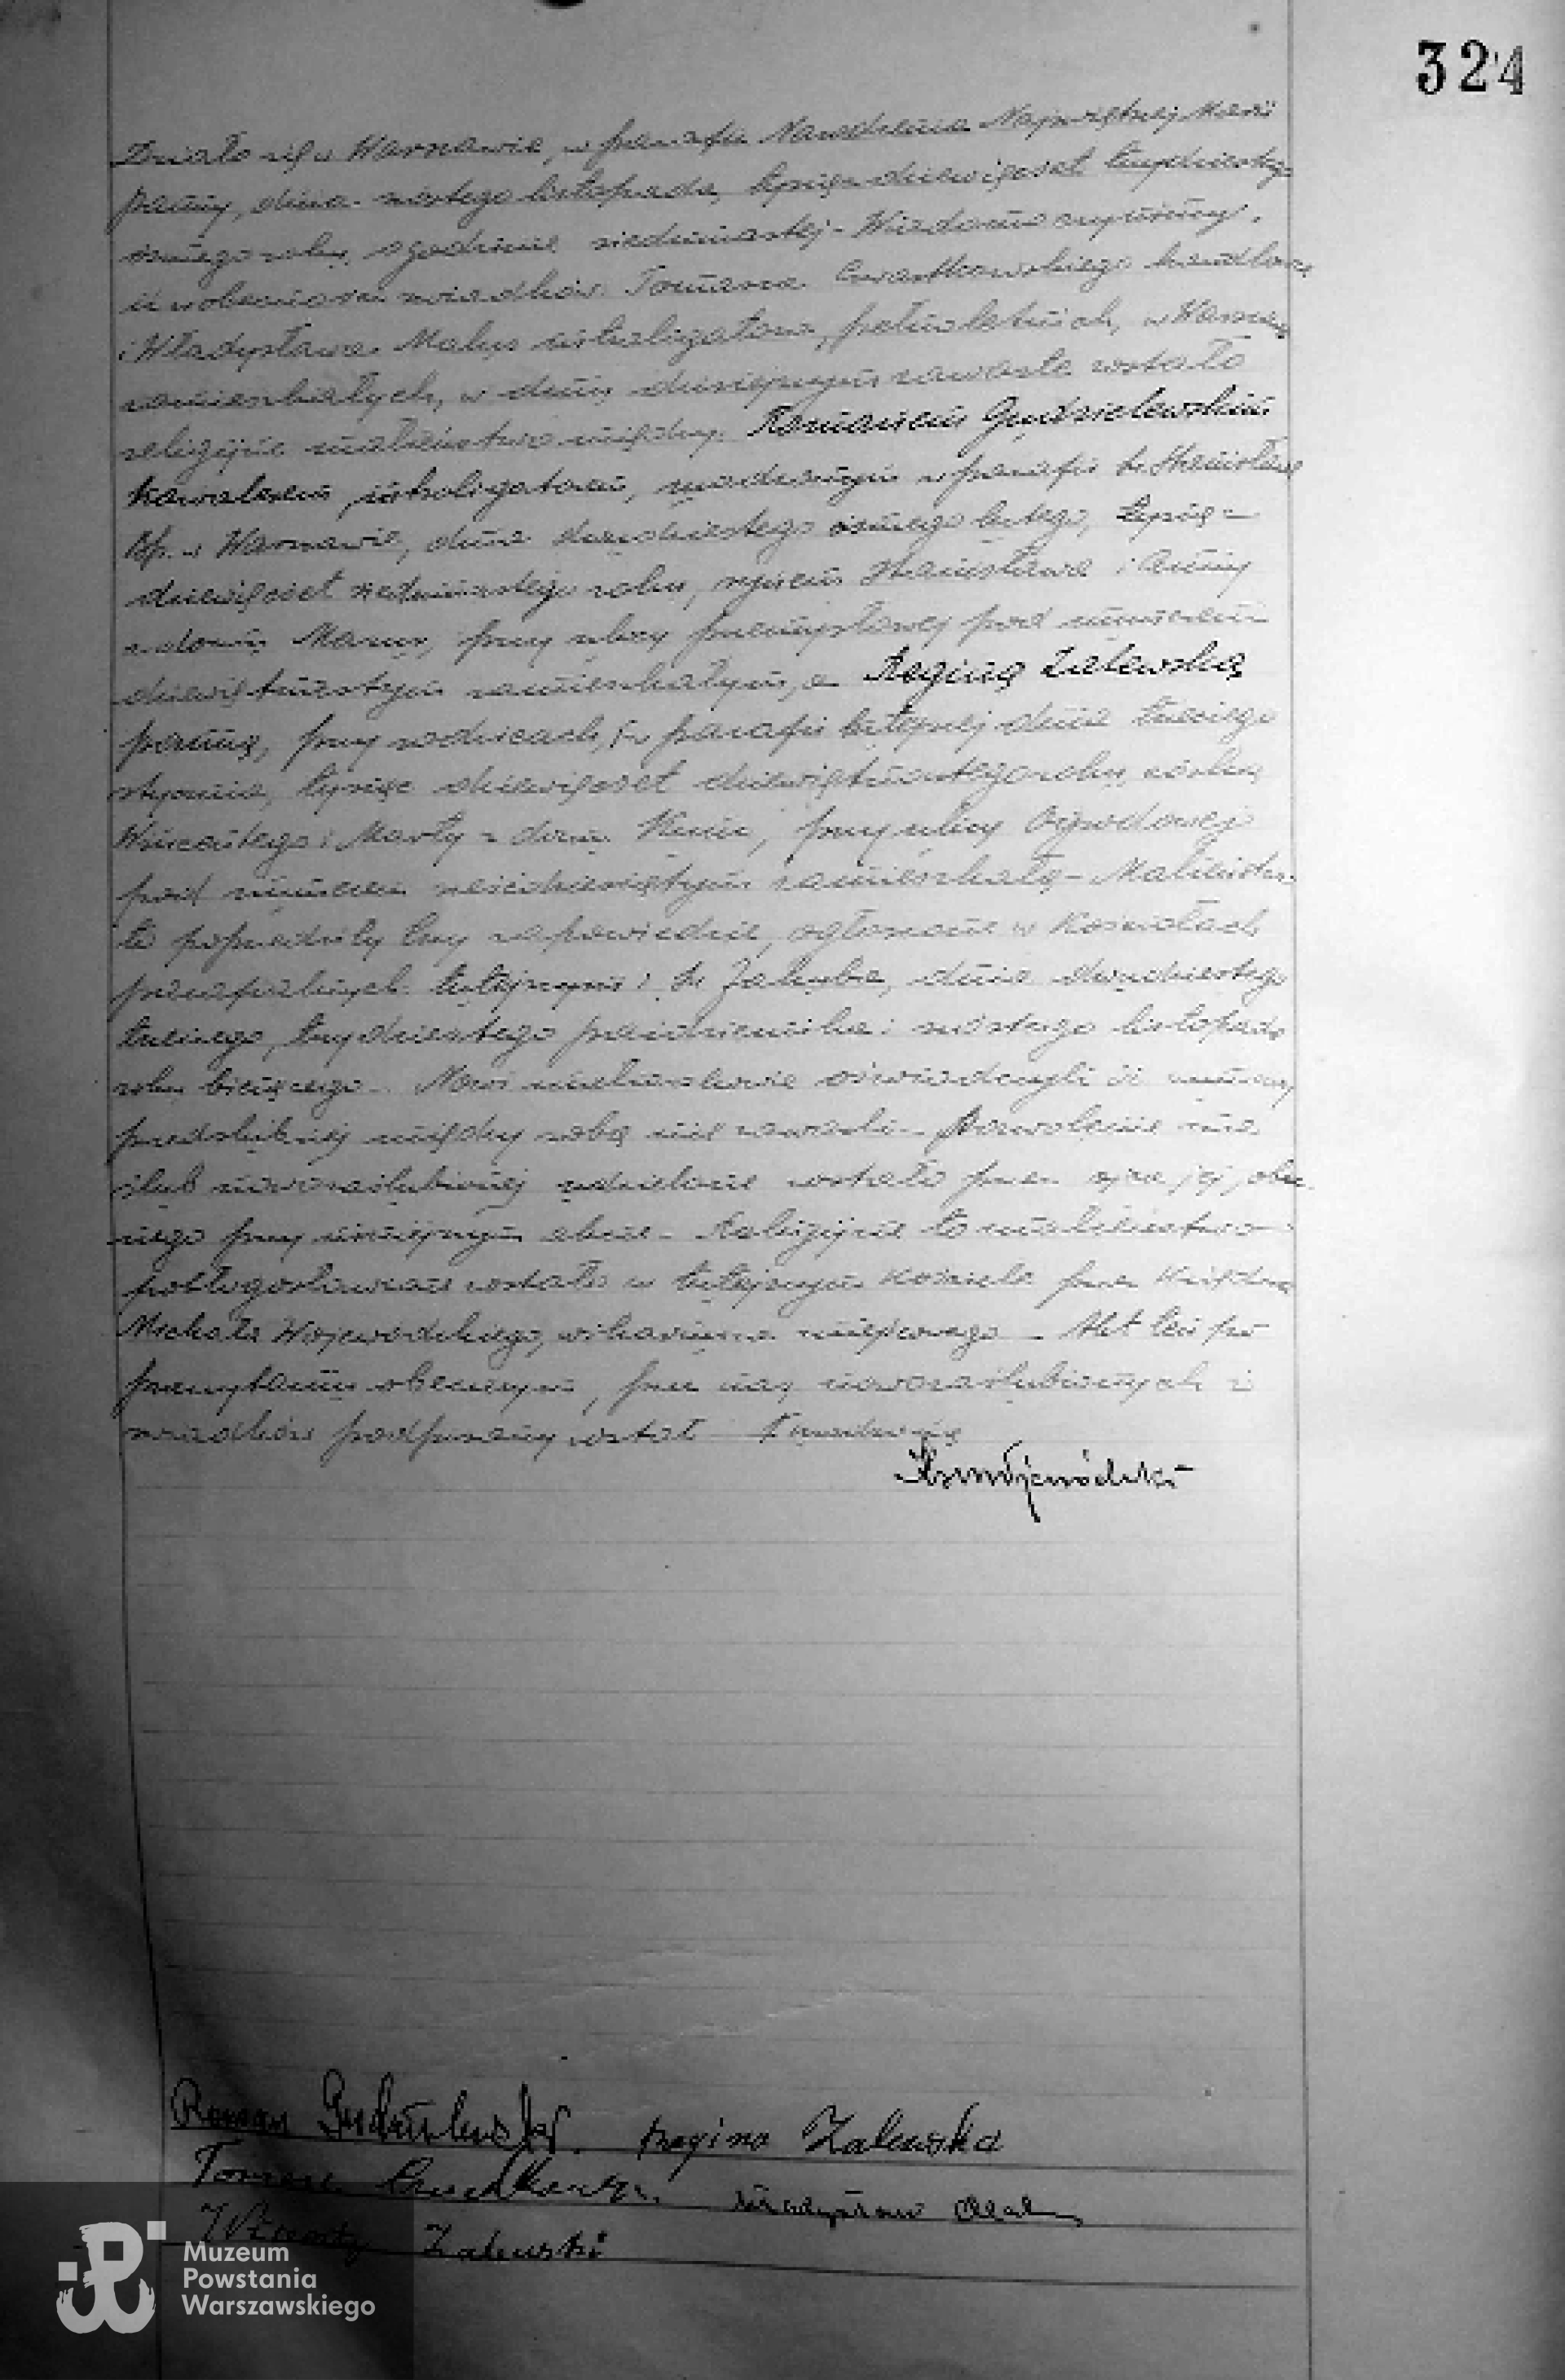 324
Działo się w Warszawie, w parafii Narodzenia Najświętszej Marii
Panny, dnia szóstego listopada, tysiąc dziewięćset trzydziestego
ósmego roku, o godzinie siedemnastej - Wiadomo czynimy,
iż w obecności świadków: Tomasza Cwiartkowskiego handlowca
i Władysława Malus introligatora, pełnoletnich, w Warszawie
zamieszkałych, w dniu dzisiejszym zawarte zostało
religijne małżeństwo między: Romanem Gudzielewskim
kawalerem, introligatorem, urodzonym w parafii św. Stanisława
Bp. w Warszawie, dnia dwudziestego ósmego lutego, tysiąc-
dziewięćset siedemnastego roku, synem Stanisława i Anny
z domu, przy ulicy Przemysłowej pod numerem
dziewiętnastym zamieszkałym, a Reginą Zalewską
panną, przy rodzicach, w parafii tutejszej dnia trzeciego
stycznia, tysiąc dziewięćset dziewiętnastego roku, córką
Wincentego i Marty z dom., przy ulicy Ogrodowej
pod numerem sześćdziesiątym zamieszkałą - Małżeństwo
to poprzedziły trzy zapowiedzie, ogłoszone w Kościołach
parafialnych: tutejszym i św Jakuba, dnia dwudziestego
trzeciego, trzydziestego października i szóstego listopada
roku bieżącego - Nowi małżonkowie oświadczyli iż umowy
przedślubnej między sobą nie zawarli - Pozwolenie na
ślub nowozaślubionej udzielone zostało przez ojca jej, obec-
nego przy niniejszym akcie - Religijne to małżeństwo
pobłogosławione zostało w tutejszym Kościele przez Księdza
Michała Wojewódzkiego, wikariusza miejscowego - Akt ten po
przeczytaniu obecnym, przez nas, nowozaślubionych i
świadków podpisany został
Ks. M. Wojewódzki
Roman Gudzielewski. Regina Zalewska
Tomasz Władysław
Wincenty Zalewski
Muzeum
Powstania
Warszawskiego